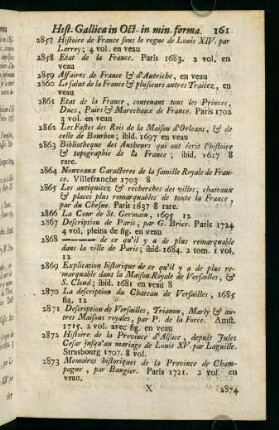 Hist. Gallica in Oct. in min. forma. 161
2857 Histoire de France sous le regne de Louis XIV. par
Larrey; 4 vol. en veau
2858 Etat de la France. Paris 1683. 2 vol. en
veau.
2859 Affaires de France & d'Autriche, en veau
2860 Le salut de la France & plusieurs autres Traitez, en
veau.
2861 Etat de la France, contenant tous les Princes,
Ducs, Pairs & Marechaux de France. Paris 1702
3 vol. en veau.
2862 Les Fastes des Rois de la Maison d'Orleans, & de
celle de Bourbon; ibid. 1697 en veau
2863 Bibliotheque des Autheurs qui ont écrit l'histoire
& topographie de la France; ibid, 1627 8
rare.
2864 Nouveaux Caractères de la famille Royale de Fran-
ce. Villefranche 1703 8
2865 Les antiquitez & recherches des villes; chateaux
& places plus remarquables de toute la France,
par du Chesne. Paris 1637 8 rare.
2866 La Cour de St. Germain, 1695 12
2867 Description de Paris, par G. Brice. Paris 1724
4 vol, pleins de fig. en veau
2868 ——— de ce qu'il y a de plus remarquable
dans la ville de Paris; ibid. 1684. 2 tom. 1 vol,
12
2869 Explication historique de ce qu'il y a de plus re-
marquable dans la Maison Royale de Versailles, &
S. Cloud; ibid. 1681 en veau 8
2870 La description du Chateau de Versailles, 1685
fig. 12
2871 Description de Versailles, Trianon, Marly & au-
tres Maisons royales, par P. de la Force. Amst.
1715. 2 vol. avec fig. en veau
2872 Histoire de la Province d'Alsace, depuis Jules
Cesar jusqu'au mariage de Louis XV. par Laguille.
Strasbourg 1707. 8 vol.
2873 Memoires historiques de la Province de Cham-
pagne, par Baugier. Paris 1721. 2 vol. en
veau.
X 2874